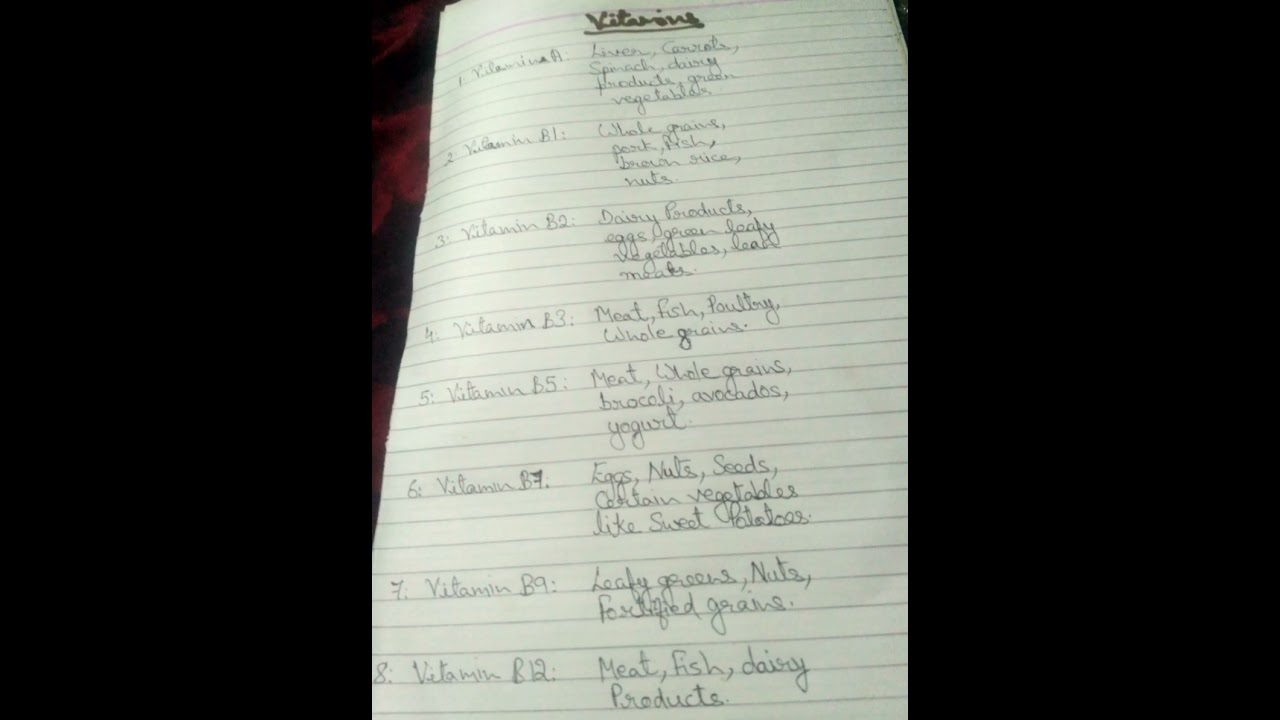 Vitamins
1. Vitamin A: Liver, Carrots,
Spinach, dairy
products, green
vegetables
2. Vitamin B1: Whole grains,
pork, fish,
brown rice,
nuts.
3: Vitamin B2: Dairy Products,
eggs, green leafy
vegetables, lean
meats.
4: Vitamin B3: Meat, Fish, Poultry,
Whole grains.
5: Vitamin B5: Meat, Whole grains,
brocoli, avocados,
yogurt.
6: Vitamin B7: Eggs, Nuts, Seeds,
Certain vegetables
like Sweet Potatoes.
7: Vitamin B9: Leafy greens, Nuts,
Fortified grains.
8: Vitamin B12: Meat, Fish, dairy
Products.